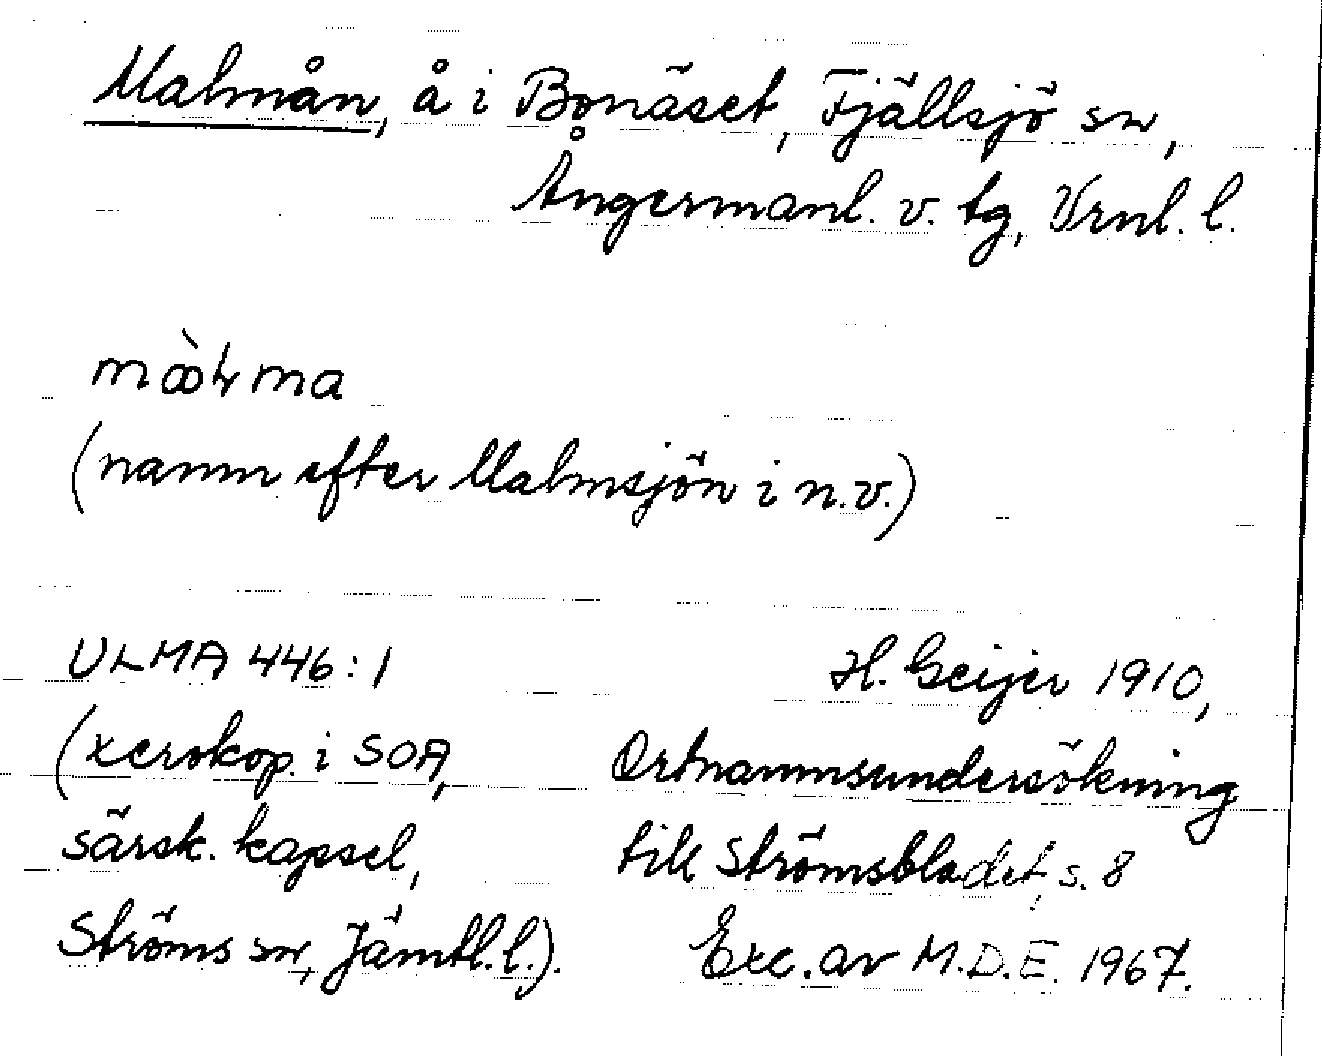 Malmån, å i Bonäset, Fjällsjö sn,
Ångermanl. v. tg, Vrnl. l.
(namn efter Malmsjön i n.v.)
ULMA 446:1
(xerokop. i SOA,
särsk. kapsel,
Ströms sn, Jämtl. l.).
H. Geijer 1910,
Ortnamnsundersökning
till Strömsbladet, s. 8
Exc. av M.D.E. 1967.